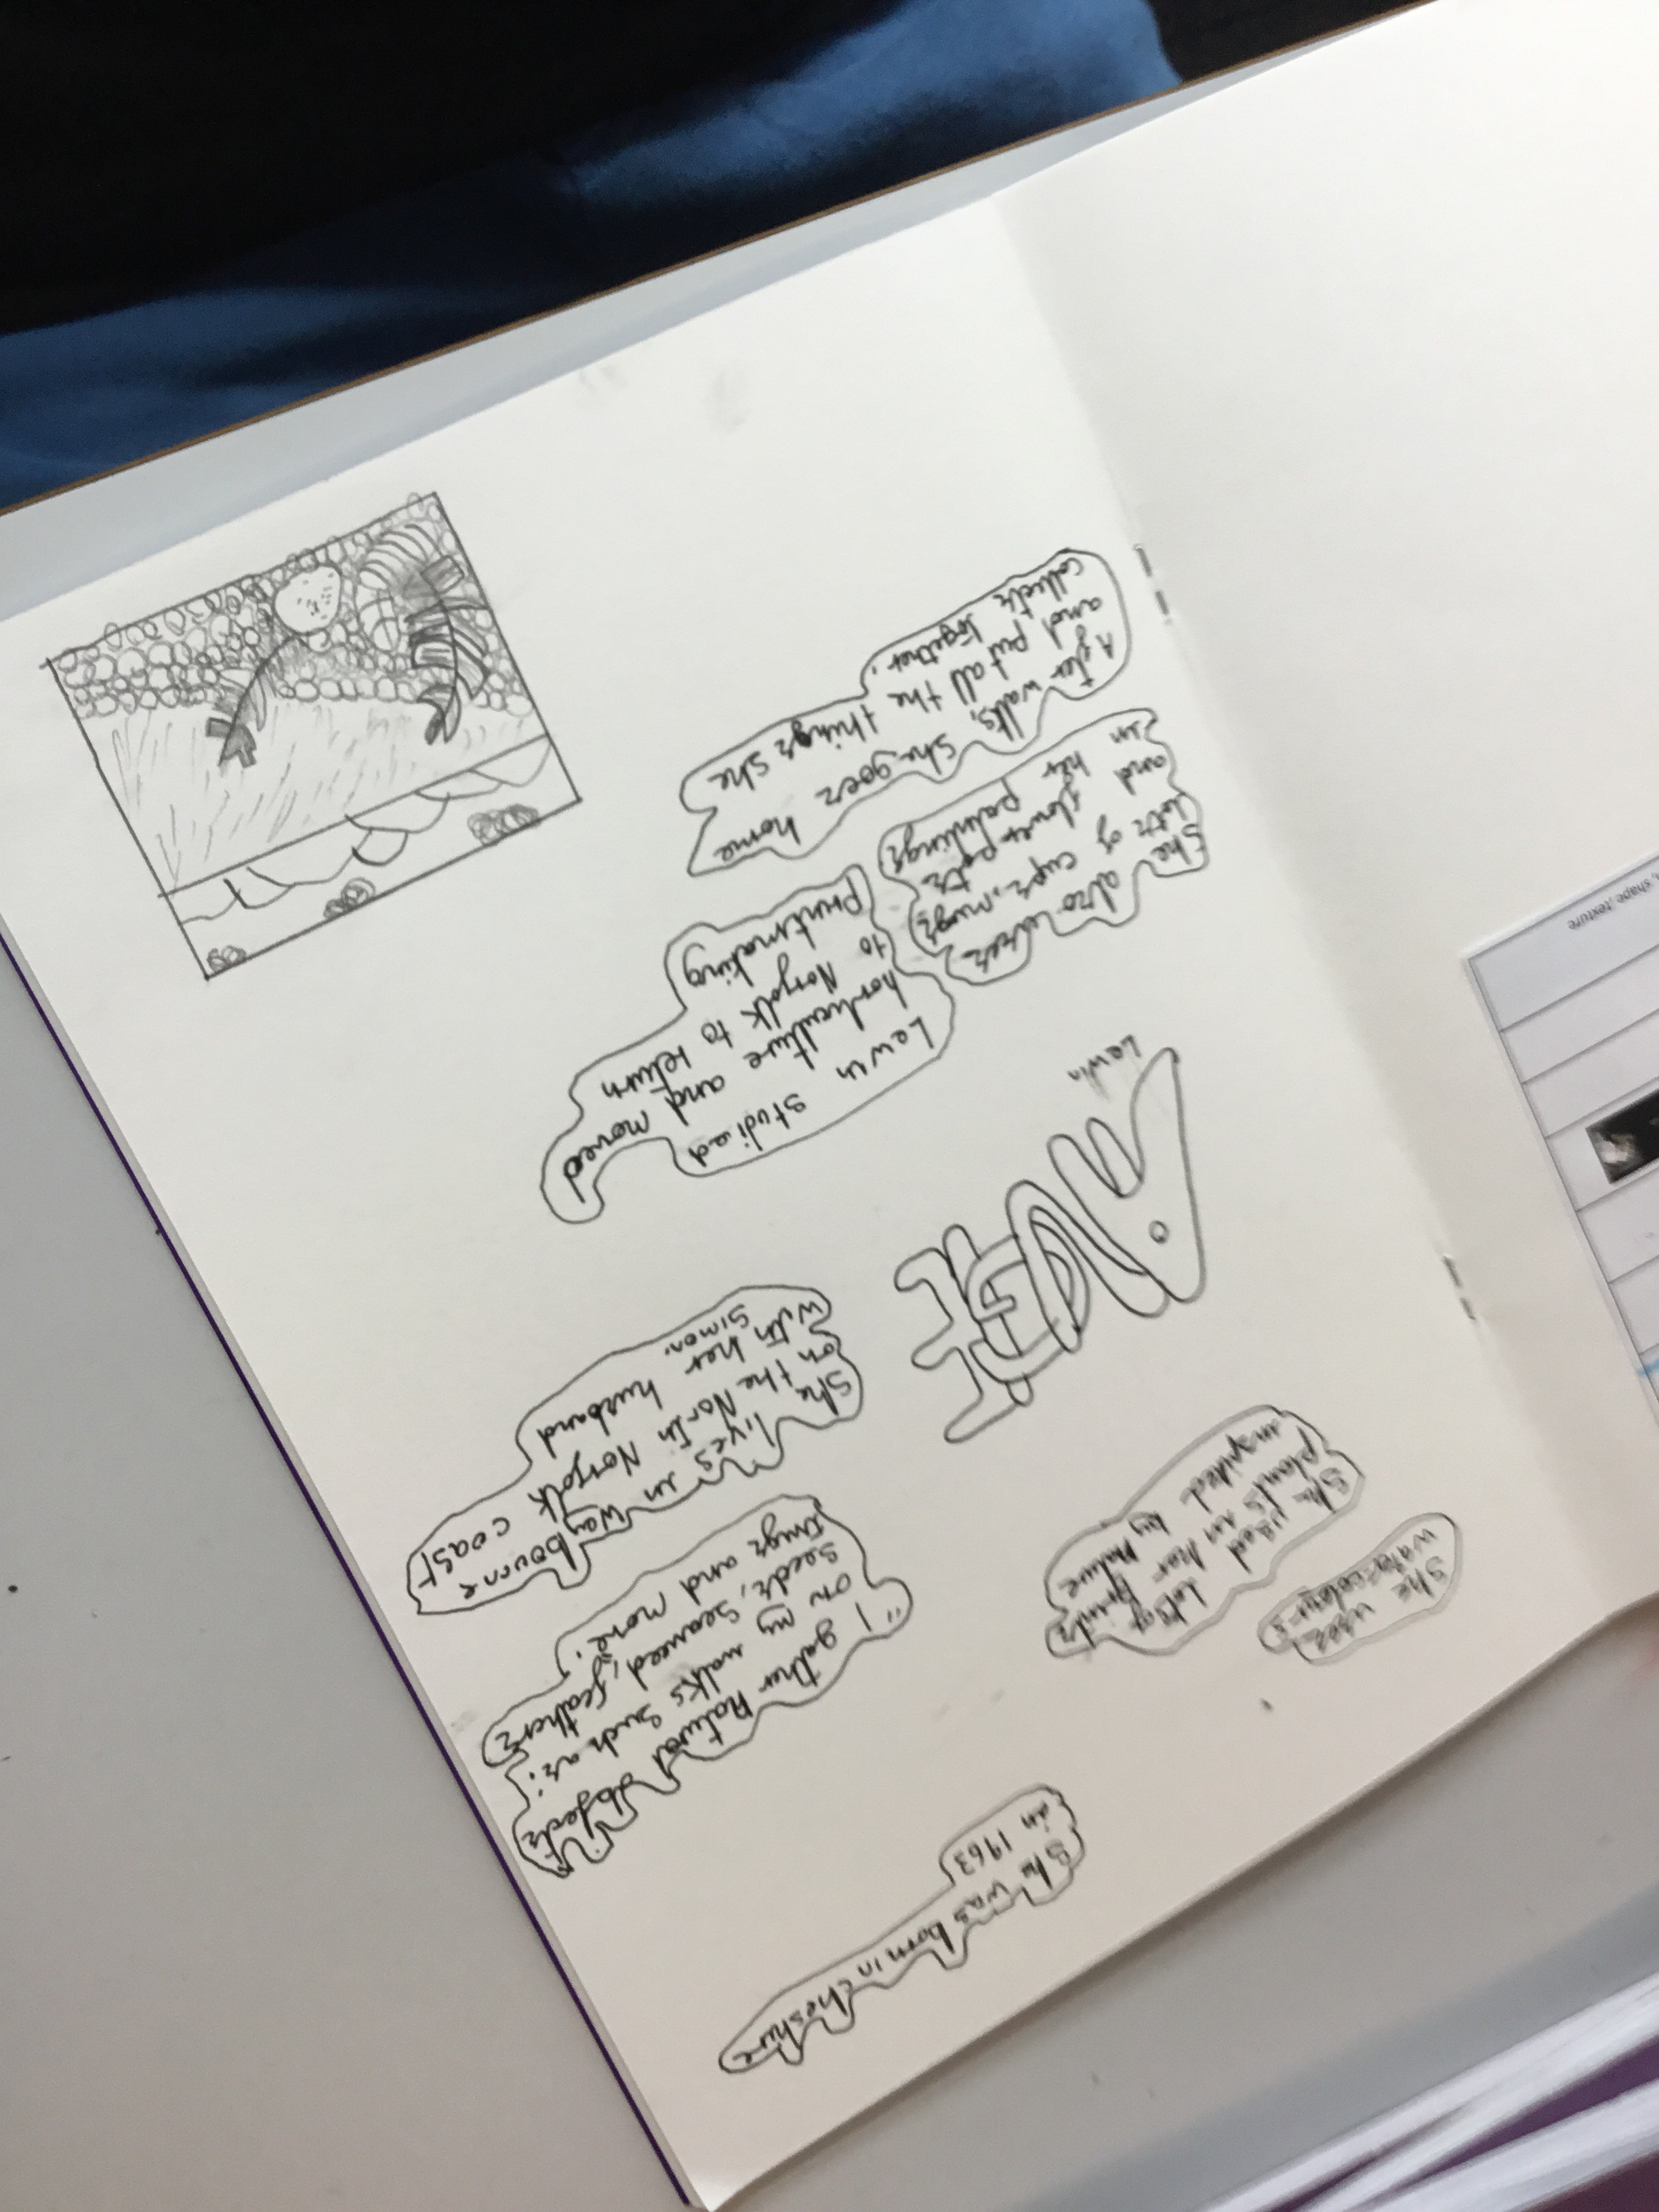 She was born in Cheshire
in 1963
She uses
watercolours
She used lots of
plants in her prints
inspired by nature
"I gather natural objects
on my walks such as:
seeds, seaweed, feathers
twigs and more."
She lives in Waybourne
on the North Norfolk coast
with her husband
Simon.
ANGIE
Lewin
Lewin studied
horticulture and moved
to Norfolk to return
printmaking
She also uses
lots of cups, mugs
and flower pots
in her paintings
After walks, she goes home
and put all the things she
collects together.
shape, texture